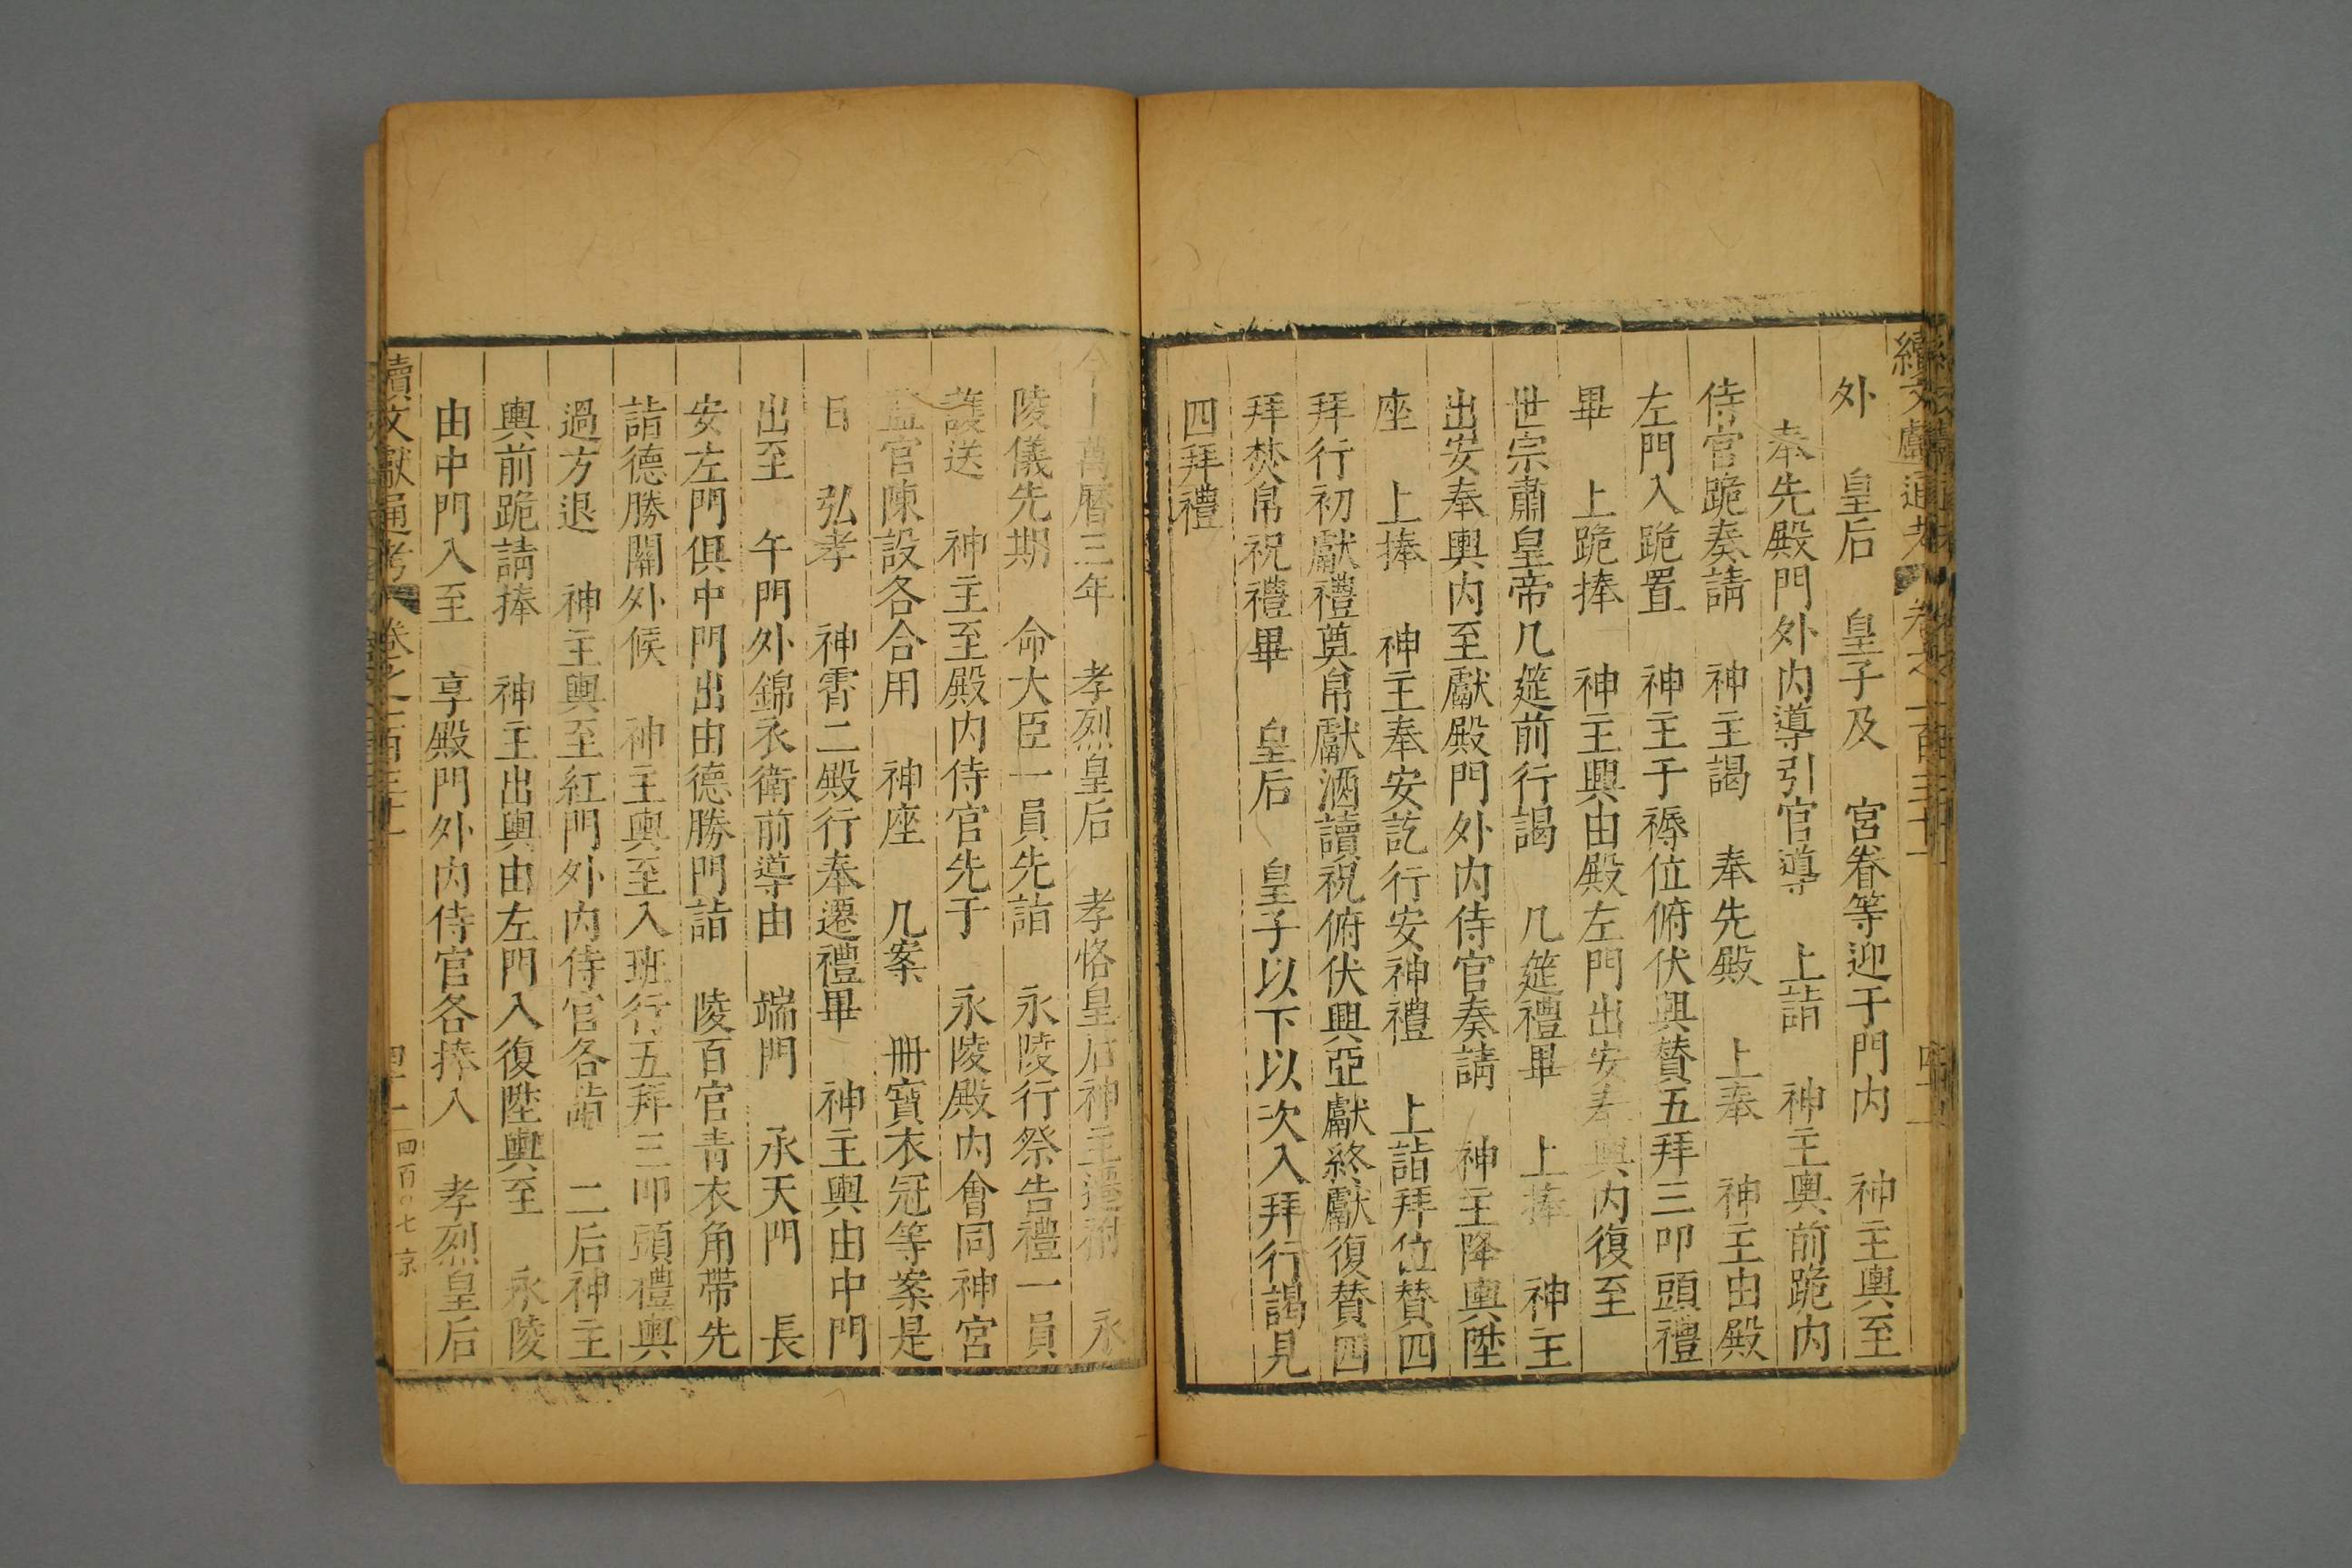 續文獻通考 卷之一百三十一
外 皇后 皇子及 宮眷等迎于門內 神主輿至
奉先殿門外內導引官導 上詣 神主輿前跪內
侍官跪奏請 神主謁 奉先殿 上奉 神主由殿
左門入跪置 神主于褥位俯伏興贊五拜三叩頭禮
畢 上跪捧 神主興由殿左門出安奉輿內復至
世宗肅皇帝几筵前行謁 几筵禮畢 上捧 神主
出安奉輿內至獻殿門外內侍官奏請 神主降輿陞
座 上捧 神主奉安訖行安神禮 上詣拜位贊四
拜行初獻禮奠帛獻酒讀祝俯伏興亞獻終獻復贊四
拜焚帛祝禮畢 皇后 皇子以下以次入拜行謁見
四拜禮
今上萬曆三年 孝烈皇后 孝恪皇后神主遷祔 永
陵儀先期 命大臣一員先詣 永陵行祭告禮一員
護送 神主至殿內侍官先于 永陵殿內會同神宮
監官陳設各合用 神座 几案 冊寶衣冠等案是
日 弘孝 神霄二殿行奉遷禮畢 神主輿由中門
出至 午門外錦衣衛前導由 端門 承天門 長
安左門俱中門出由德勝門詣 陵百官青衣角帶先
詣德勝關外候 神主輿至入班行五拜三叩頭禮輿
過方退 神主輿至紅門外內侍官各詣 二后神主
輿前跪請捧 神主出輿由左門入復陞輿至 永陵
由中門入至 享殿門外內侍官各捧入 孝烈皇后
續文獻通考 卷之一百三十一 四百〇七 京